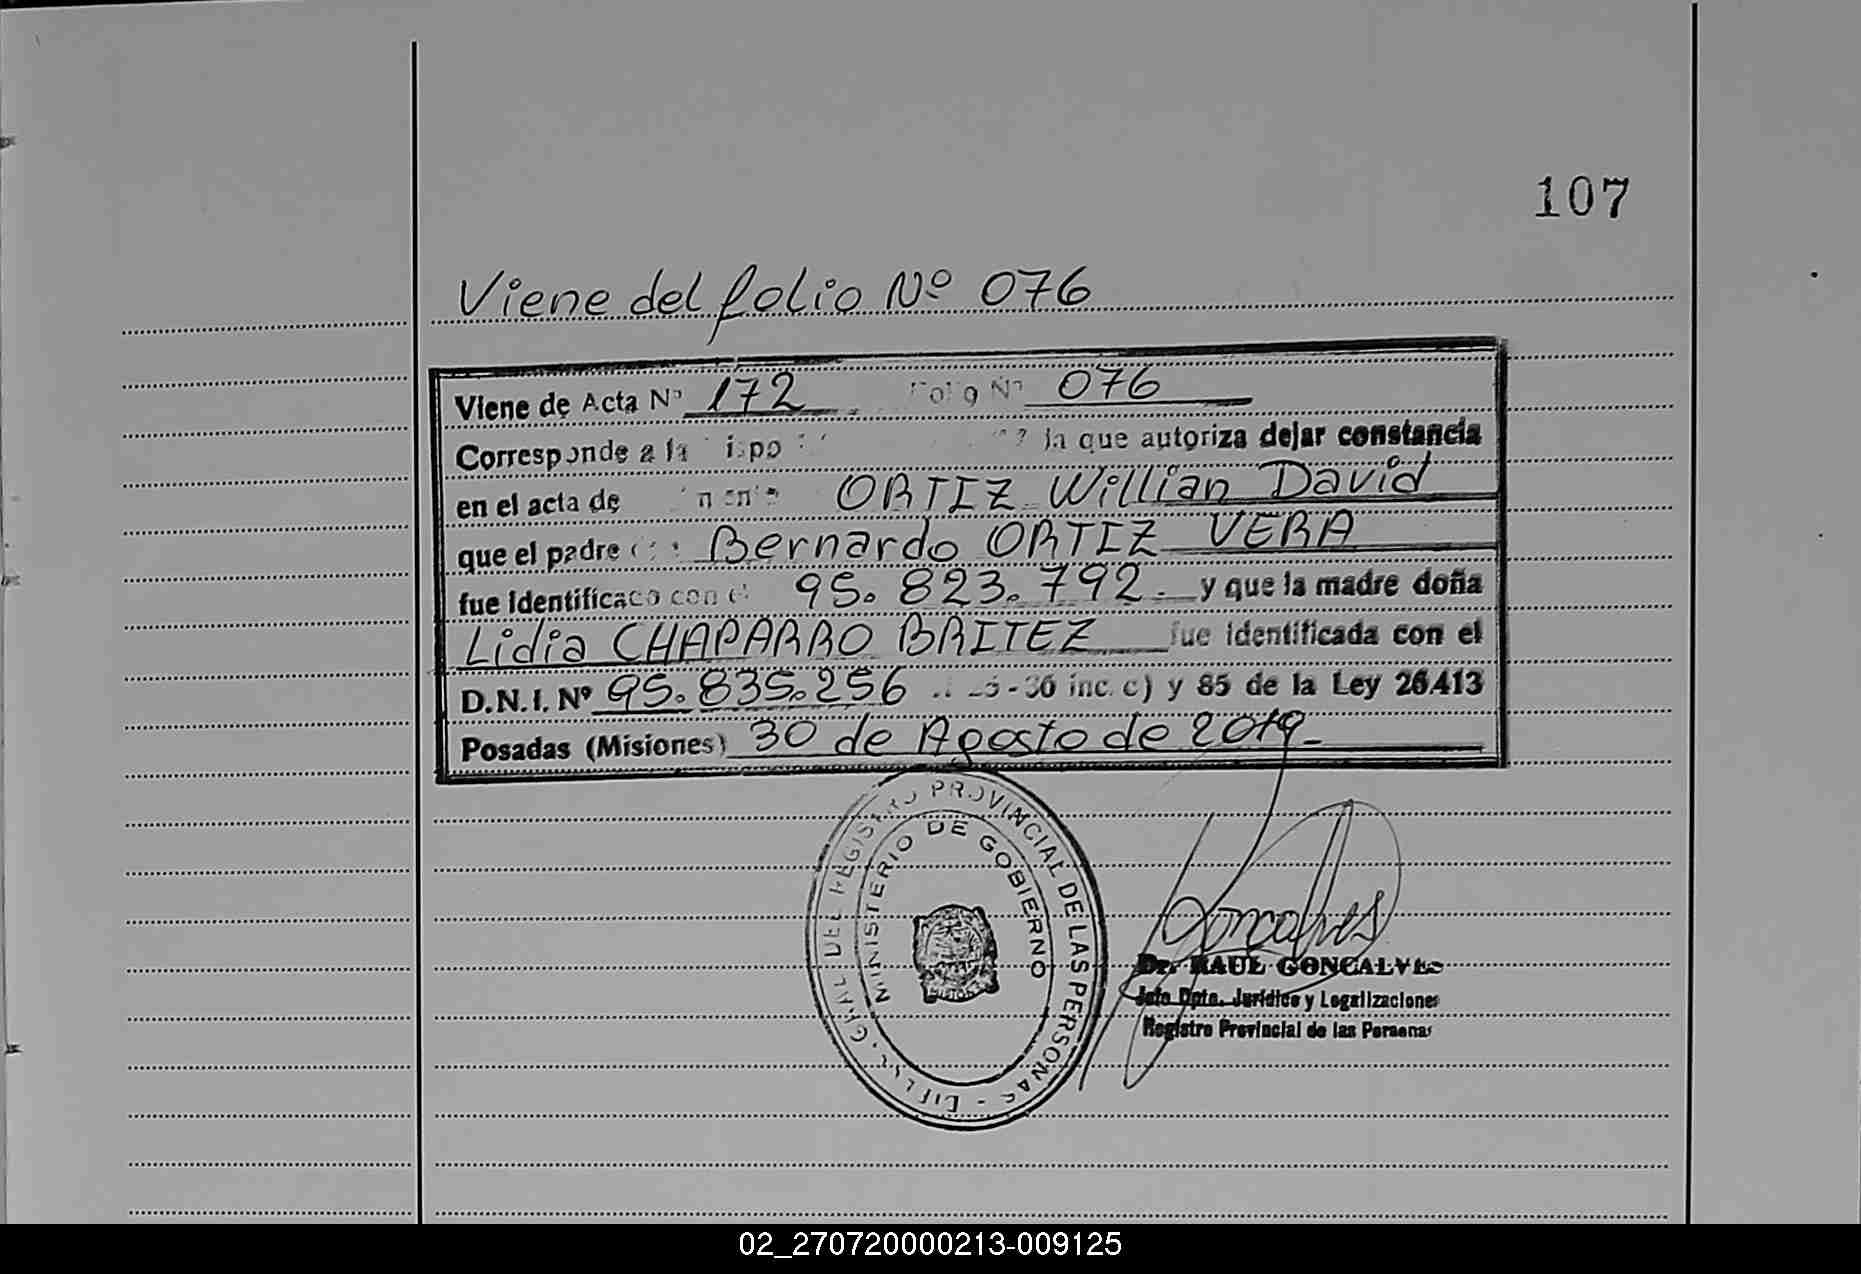 107
Viene del folio Nº 076
Viene de Acta Nº 172 Folio Nº 076
Corresponde a la la que autoriza dejar constancia
en el acta de ORTIZ Willian David
que el padre Bernardo ORTIZ VERA
fue identificado con el 95.823.792. y que la madre doña
Lidia CHAPARRO BRITEZ fue identificada con el
D.N.I. Nº 95.835.256 inc. c) y 85 de la Ley 26.413
Posadas (Misiones) 30 de Agosto de 2019.-
DEL REGISTRO PROVINCIAL DE LAS PERSONAS
MINISTERIO DE GOBIERNO
MISIONES
Goncalves
Dr. RAUL GONCALVES
Jefe Dpto. Jurídico y Legalizaciones
Registro Provincial de las Personas
02_270720000213-009125